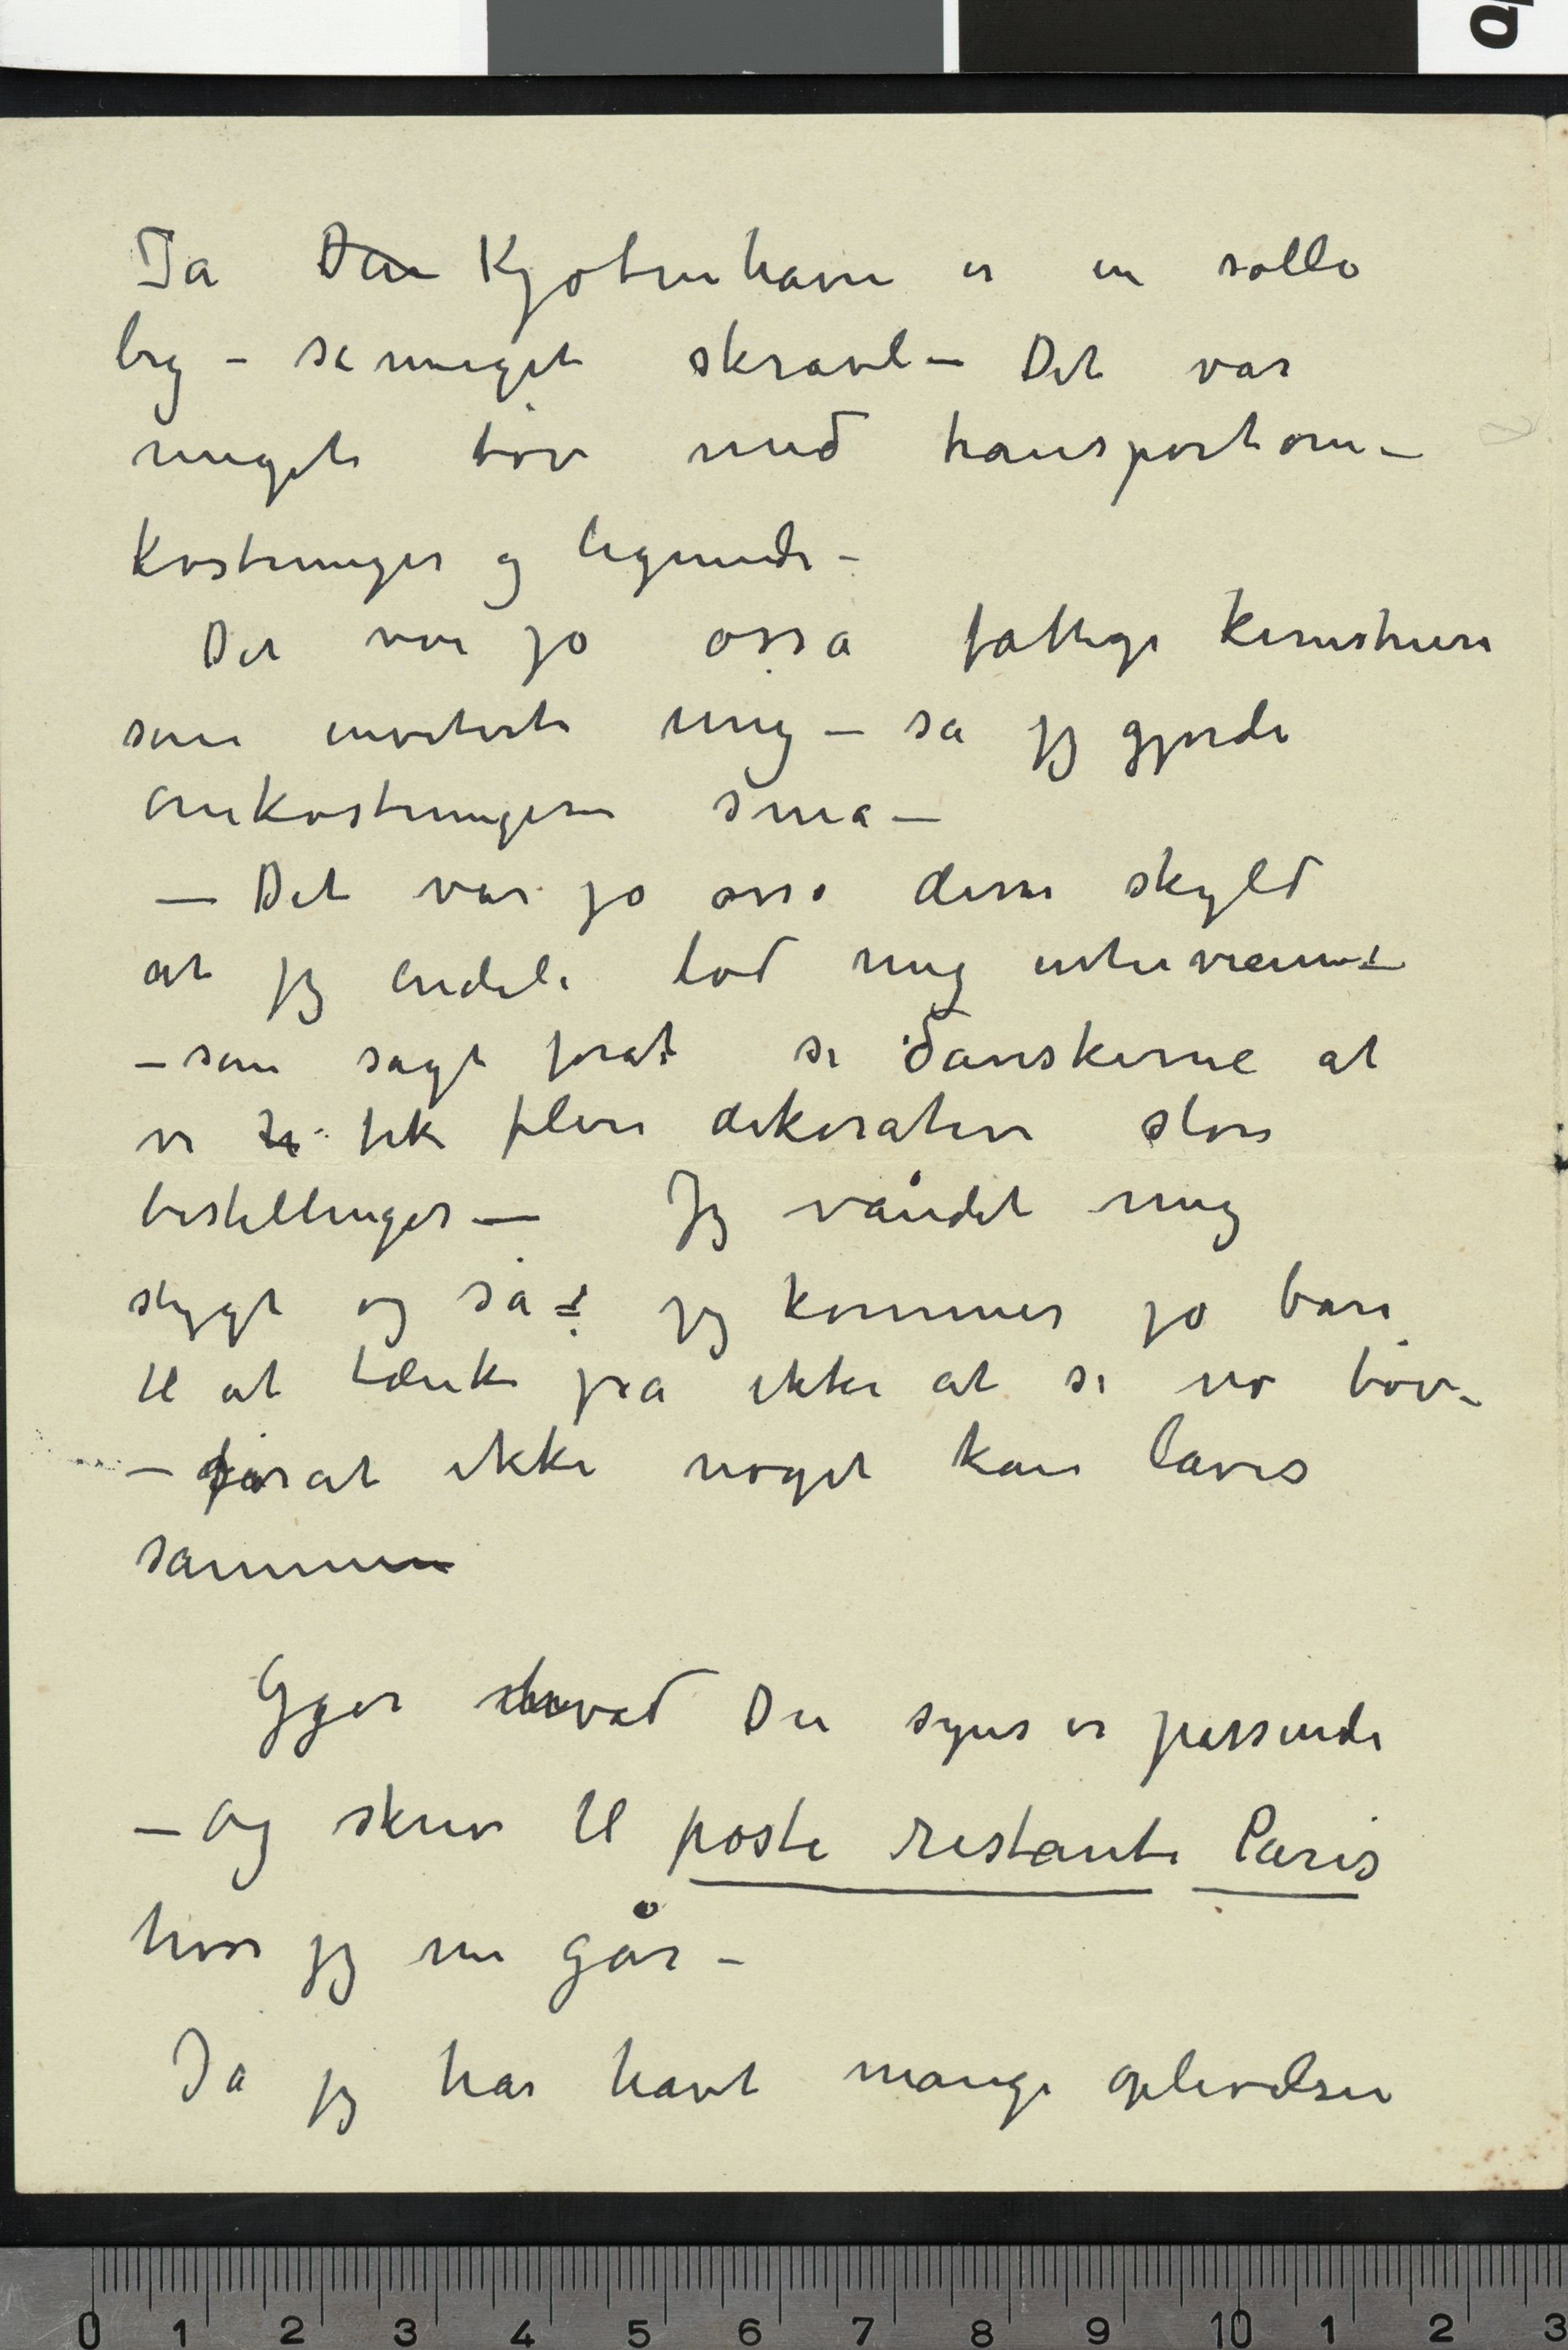 Ja Kjøbenhavn er en solla
by – så meget skravl – Det var
meget tøv med transportom–
kostninger og lignende –
Det var jo osså fattige kunstnere
som inviterte mig – så jeg gjorde
omkostningerne små –
– Det var jo osså disse skyld
at jeg endeli lod mig interviewe –
– som sagt forat si danskerne at
vi fik flere dekorative store
bestillinger – Jeg våndet mig
stygt og så – jeg kommer jo bare
til at tænke på ikke at si no tøv –
– forat ikke noget kan laves
sammen
Gjør hvad Du synes er passende
– og skriv til poste restante Paris
hvor jeg nu går –
Ja jeg har havt mange oplevelser
0 1 2 3 4 5 6 7 8 9 10 1 2 3